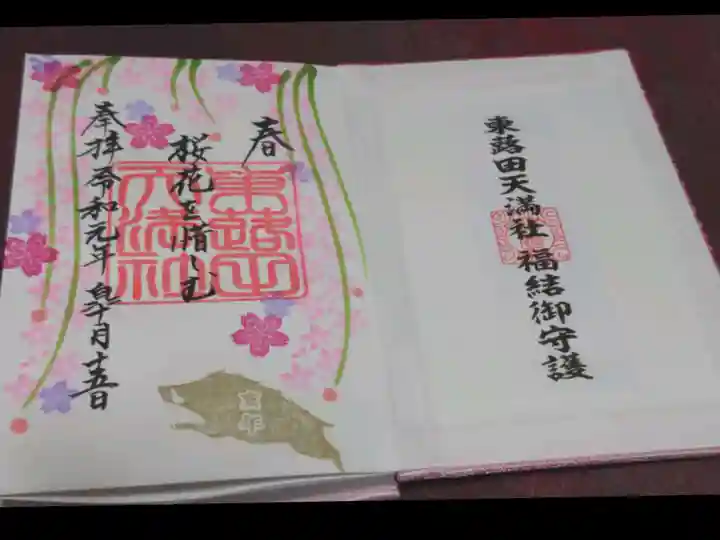 東蕗田天満社 福結御守護
春
桜花を惜しむ
奉拝 令和元年 月十五日
東蕗田
天満社
亥年